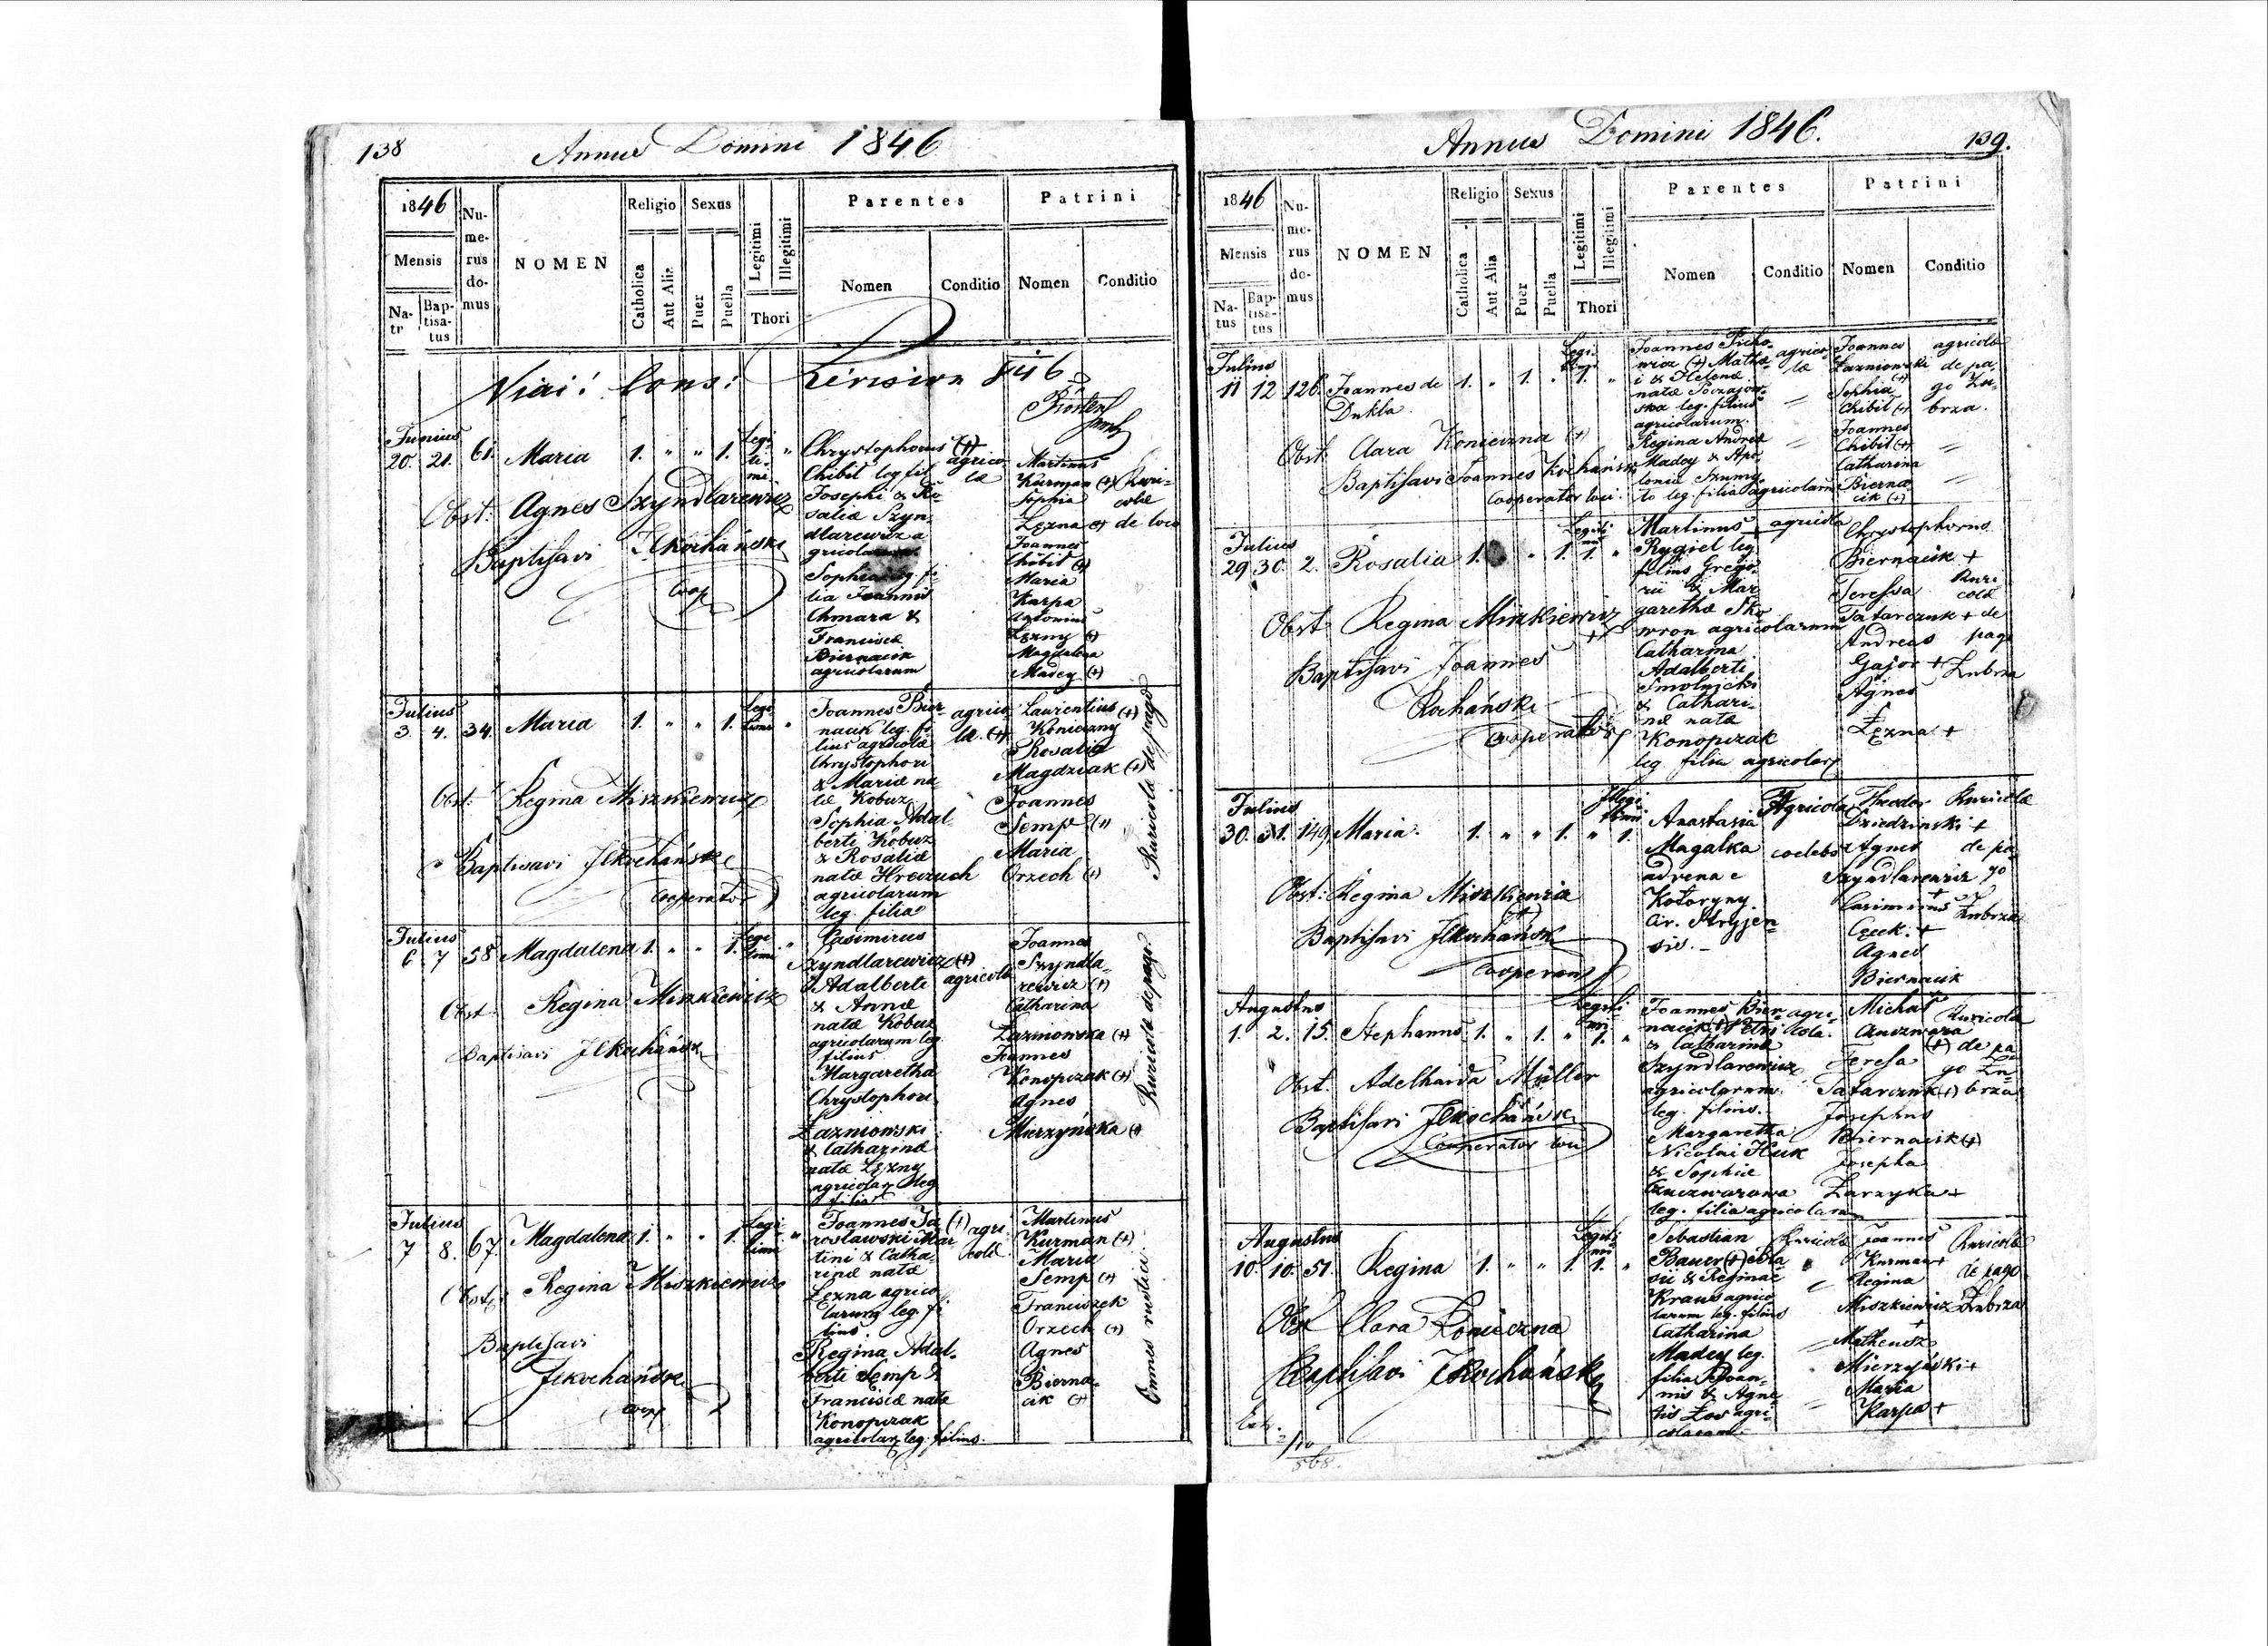 138
Annus Domini 1846
1846
Nu-
me-
rus
do-
mus
NOMEN
Religio
Sexus
Parentes
Patrini
Mensis
Catholica
Aut Alia
Puer
Puella
Legitimi
Illegitimi
Thori
Nomen
Conditio
Nomen
Conditio
Na-
Bap-
tisa-
tus
846
Junius
20. 21. 61. Maria 1. " " 1. Legi
ti-
mi "
Obst: Agnes Szyndlarewicz
Baptisavi JKochański
Coop
Chrystophorus (+)
Chibit leg fil
Josephi & Ro
saliæ Szyn
dlarewicz a
Sophia leg fi
lia Joannis
Chmara &
Franciscæ
Biernacik
agricolarum
agrico
la
Martinus
Kurman (+)
Sophia
Łęzna (+)
Joannes
Chibit (+)
Maria
Karpa
Antonius
Łęzny (+)
Magdalena
Madey (+)
Ruri-
colæ
de loco
Julius
3. 4. 34. Maria 1. " " 1. Legi
timi "
Obst: Regina Miszkiewicz
Baptisavi JKochański
Cooperator
Joannes Bier
nacik leg. fi
lius agricolæ
Chrystophori
& Mariæ na
tæ Kobuz
Sophia Adal
berti Kobuz
& Rosaliæ
natæ Hrezuch
agricolarum
leg. filia
agrico
la. (+)
Laurentius
Konieczny (+)
Rosalia
Magdziak (+)
Joannes
Semp (+)
Maria
Orzech (+)
Ruricolæ de pago
Julius
6 7 58 Magdalena 1. " " 1. Legi
timi "
Obst: Regina Miszkiewicz
Baptisavi JKochański
Casimirus
Szyndlarewicz (+)
Adalberti
& Annæ
natæ Kobuz
agricolarum leg.
filius
Margaretha
Chrystophori
Łazniowski
& Catharinæ
natæ Łęzny
agricolar leg
filia
agricola
Joannes
Szyndla-
rewicz (+)
Catharina
Łazniowska (+)
Joannes
Konopczak (+)
Agnes
Mierzyńska (+)
Ruricolæ de pago
Julius
7 8. 67. Magdalena 1. " " 1. Legi
timi "
Obst: Regina Miszkiewicz
Baptisavi
JKochański
Coop
Joannes Ja (+)
rosławski Mar
tini & Catha-
rinæ natæ
Łęzna agrico
larum leg. fi
lius.
Regina Adal-
berti Semp &
Franciscæ natæ
Konopczak
agricolar leg. filius.
agri
colæ
Martinus
Kurman (+)
Maria
Semp (+)
Franciszek
Orzech (+)
Agnes
Bierna-
cik (+)
Omnes rustici
Annus Domini 1846.
139.
1846
Nu-
me-
rus
do-
mus
NOMEN
Religio
Sexus
Parentes
Patrini
Mensis
Catholica
Aut Alia
Puer
Puella
Legitimi
Illegitimi
Thori
Nomen
Conditio
Nomen
Conditio
Na-
tus
Bap-
tisa-
tus
Julius
11 12 126. Joannes de
Dukla. 1. " 1. " Legi-
timi
1. "
Obst. Clara Konieczna (+)
Baptisavi Joannes Kochański
Cooperator loci.
Joannes
(+) Mathæ
i & Helenæ
natæ
leg. filius
agricolarum.
Regina Andreæ
Madey & Apo
loniæ
leg. filia agricolarum
agrico
la
Joannes
Łazniowski
(+)
Sophia
Chibit (+)
Joannes
Chibit (+)
Catharina
Bierna
cik (+)
agricolæ
de pa
go Zu-
brza.
Julius
29 30. 2. Rosalia 1. " 1. Legiti
mi
1. "
Obst: Regina Miszkiewicz
Baptisavi Joannes
Kochański
Cooperator
Martinus
Rygiel leg
filius Grego
rii & Mar
garethæ Sko
wron agricolarum
Catharina
Adalberti
Smolnicki
& Cathari-
næ natæ
Konopczak
leg filia agricolar
agricola
Chrystophorus
Biernacik +
Teressa
Tatarczuk +
Andreas
Gajor +
Agnes
Łęzna +
Ruri
colæ
de
pago
Zubrza
Julius
30. 31. 149. Maria. 1. " " 1. Illegi
timi
" 1.
Obst: Regina Miszkiewicz
(+)
Baptisavi JKochański
Cooperans
Anastasia
Magalka
advena e
Kotoryny
Cir. Stryjen
sis. -
Agricola
coelebs
Theodor
Dziedzinski +
Agnes
Szyndlarewicz
+
Casimirus
Czuk. +
Agnes
Biernacik
Ruricolæ
de pa
go
Zubrza
Augustus
1. 2. 15. Stephanus 1. " 1. " Legiti
mi
1. "
Obst: Adelhaida Müller
Baptisavi JKochański
Cooperator loci
Joannes Bier
nacik (+) Petri
& Catharinæ
Szyndlarewicz
agricolarum
leg. filius.
Margaretha
Nicolai Huk
& Sophiæ
leg. filia agricolarum
agri-
cola.
Michał
(+)
Teresa
Tatarczuk (+)
Josephus
Biernacik (+)
Josepha
Zarzyka +
Ruricolæ
de pa
go Zu-
brza
Augustus
10. 10. 51. Regina 1. " " 1. Legiti
mi
1. "
Obst Clara Konieczna
Baptisavi JKochański
Sebastian
Bauer (+) Bla
sii & Reginae
Kraus agrico
larum leg. filius
Catharina
Madey leg.
filia Joan-
nis & Agne
tis Łos agri-
colarum.
Ruricola
Joannes
Kurman +
Regina
Miszkiewicz
+
Matheusz
Mierzyński +
Maria
Karpa +
Ruricolæ
de pago
Zubrza
568.